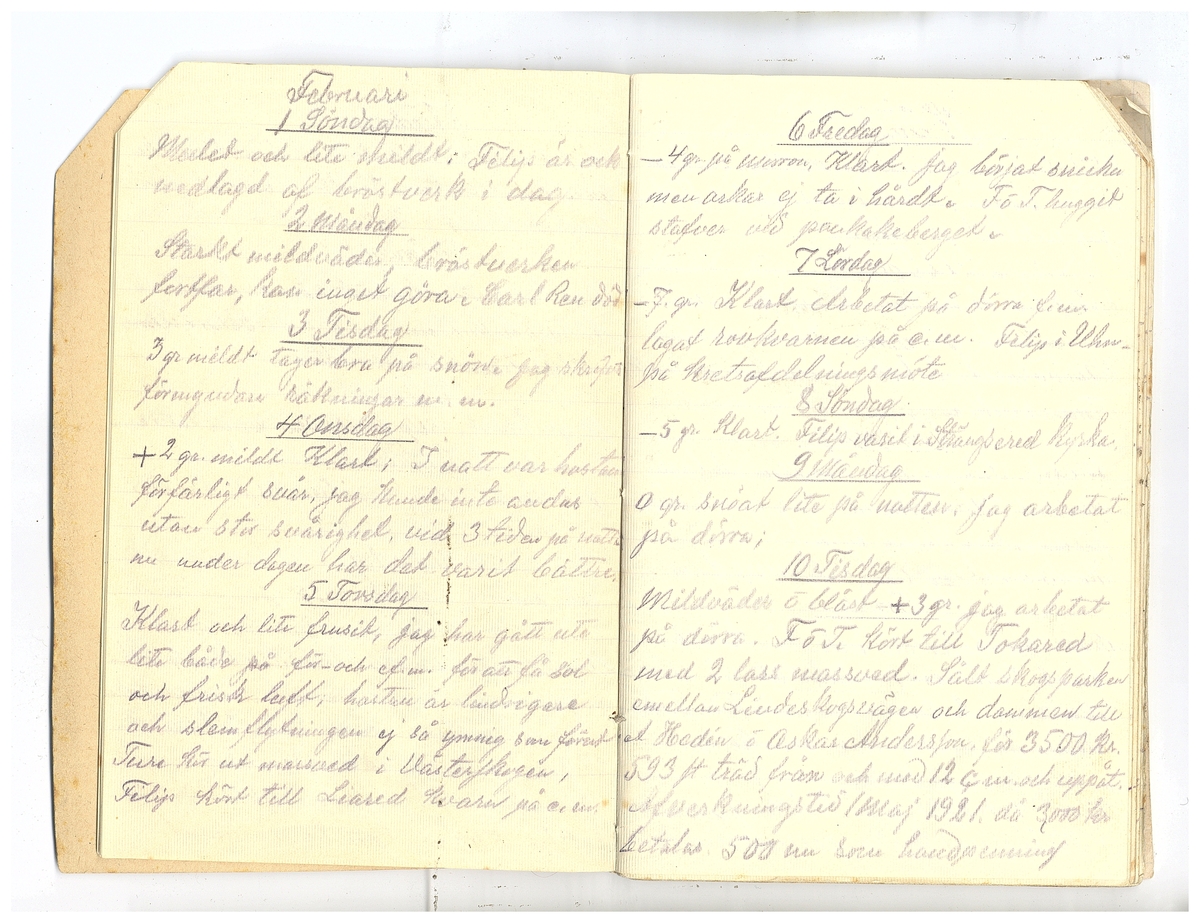 Februari
1 Söndag
Mulet och lite mildt; Filip är ock
nedlagd af bröstverk i dag
2 Måndag
Starkt mildväder, bröstverken
fortfar, kan inget göra. Carl Ren död
3 Tisdag
3 gr mildt tager bra på snön. jag skrifvit
förmyndare räkningar m.m.
4 Onsdag
+2 gr. mildt Klart; I natt var hostan
förfärligt svår, jag kunde inte andas
utan stor svårighet, vid 3 tiden på natten
nu under dagen har det varit bättre.
5 Torsdag
Klart och lite frusit, jag har gått ute
lite både på för- och e.f.m. för att få sol
och frisk luft, hostan är lindrigare
och slemflytningen ej så ymnig som förut
Ture kör ut massved i Västerskogen,
Filip kört till Liared kvarn på e.m.
6 Fredag
-4 gr. på morron, Klart. Jag börjat snickra
men orkar ej ta i hårdt. F o T. huggit
stafver vid pankakeberget.
7 Lördag
-7. gr. Klart. Arbetat på dörra f.m.
lagat rovkvarnen på e.m. Filip i Uhn-
på kretsafdelningsmöte
8 Söndag
-5 gr. Klart. Filip vasit i Strängsered kyrka.
9 Måndag
0 gr. snöat lite på natten. jag arbetat
på dörra;
10 Tisdag
Mildväder o blåst +3 gr. jag arbetat
på dörra. F o T. kört till Tokared
med 2 lass massved. Sålt skogsparken
emellan Lindeskogsvägen och dammen till
A Hedén o Oskar Andersson, för 3500 kr.
593 st träd från och med 12 c.m. och uppåt.
Afverkningstid 1 Maj 1921. då 3000 kr
betalas. 500 nu som handpenning